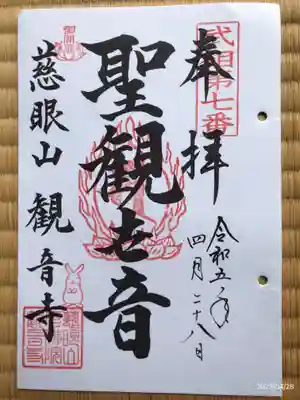 武相第七番
奉拝
令和五年
四月二十八日
聖観世音
慈眼山 観音寺